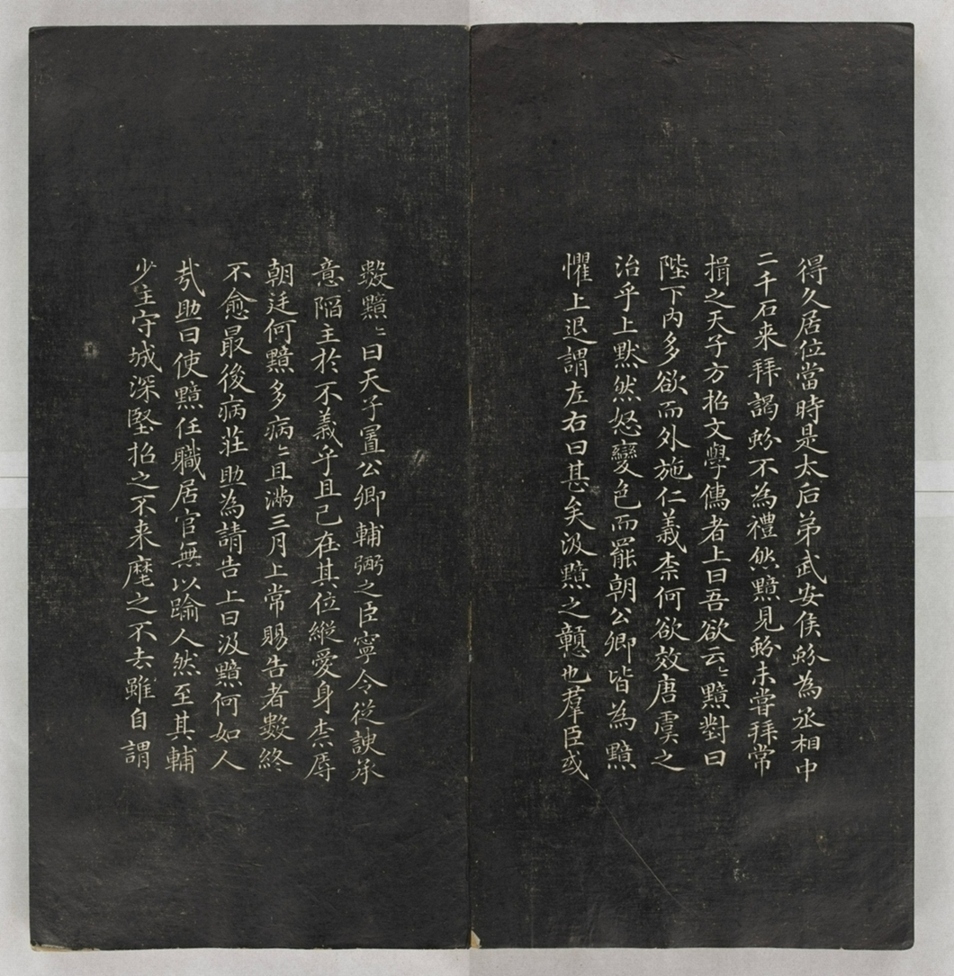 得久居位當時是太后弟武安侯蚡為丞相中
二千石来拜謁蚡不為禮然黯見蚡未嘗拜常
揖之天子方招文學儒者上曰吾欲云〻黯對曰
陛下內多欲而外施仁義柰何欲效唐虞之
治乎上默然怒變色而罷朝公卿皆為黯
懼上退謂左右曰甚矣汲黯之戇也羣臣或
數黯〻曰天子置公卿輔弼之臣寧令從諛承
意陷主於不義乎且已在其位縱愛身柰辱
朝廷何黯多病〻且滿三月上常賜告者數終
不愈最後病莊助為請告上曰汲黯何如人
哉助曰使黯任職居官無以踰人然至其輔
少主守城深堅招之不来麾之不去雖自謂